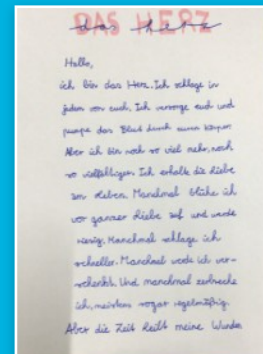 DAS HERZ
das herz
Hallo,
ich bin das Herz. Ich schlage in
jedem von euch. Ich versorge euch und
pumpe das Blut durch euren Körper.
Aber ich bin noch so viel mehr, noch
so vielfältiger. Ich erhalte die Liebe
am Leben. Manchmal blühe ich
vor ganzer Liebe auf und werde
riesig. Manchmal schlage ich
schneller. Manchmal werde ich ver-
schenkt. Und manchmal zerbreche
ich, meistens sogar regelmäßig.
Aber die Zeit heilt meine Wunden